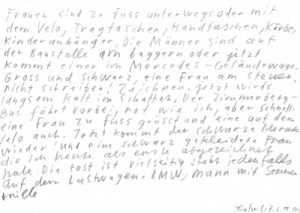 Frauen sind zu fuss unterwegs oder mit
dem Velo, Tragtaschen, Handtaschen, Körbe,
Kinderanhänger. Die Männer sind auf
der Baustelle am baggern oder jetzt
kommt einer im Mercedes-Geländewage.
Gross und schwarz, eine Frau am steuer.
nicht schreiben! Zeichnen. Jetzt wirds
langsam kalt im schatten. Der Zimmerberg-
bus fährt vorbei, rot wie ich, aber schnell.
eine Frau zu fuss grüsst und eine auf dem
Velo auch. Jetzt kommt der schwarze Mercede
wieder! und eine schwarz gekleidete Frau
die ich heute als erste abgezeichnet
habe. Die Post ist vielseitig steht jedenfalls
auf dem Lastwagen. BMW, mann mit Sonnen
brille